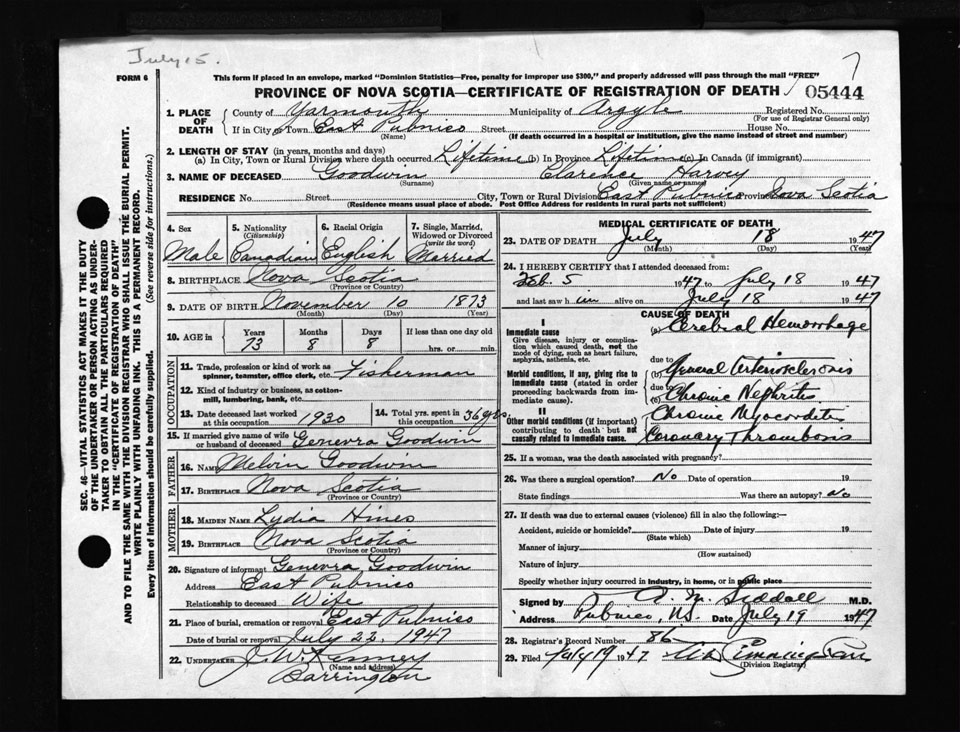 July 15.
7
FORM 6
This form if placed in an envelope, marked "Dominion Statistics—Free, penalty for improper use $300," and properly addressed will pass through the mail "FREE"
PROVINCE OF NOVA SCOTIA—CERTIFICATE OF REGISTRATION OF DEATH 05444
1. PLACE OF DEATH { County of Yarmouth Municipality of Argyle Registered No.
(For use of Registrar General only)
If in City or Town East Pubnico Street House No.
(Name) (If death occurred in a hospital or institution, give the name instead of street and number)
2. LENGTH OF STAY (in years, months and days)
(a) In City, Town or Rural Division where death occurred Lifetime (b) In Province Lifetime (c) In Canada (if immigrant)
3. NAME OF DECEASED Goodwin Clarence Harvey
(Surname) (Given name or names)
RESIDENCE No. Street City, Town or Rural Division East Pubnico Province Nova Scotia
(Residence means usual place of abode. Post Office Address for residents in rural parts not sufficient)
SEC. 46—VITAL STATISTICS ACT MAKES IT THE DUTY
OF THE UNDERTAKER OR PERSON ACTING AS UNDER-
TAKER TO OBTAIN ALL THE PARTICULARS REQUIRED
IN THE "CERTIFICATE OF REGISTRATION OF DEATH"
AND TO FILE THE SAME WITH THE DIVISION REGISTRAR WHO SHALL ISSUE THE BURIAL PERMIT.
WRITE PLAINLY WITH UNFADING INK. THIS IS A PERMANENT RECORD.
Every item of information should be carefully supplied. (See reverse side for instructions.)
4. Sex 5. Nationality (Citizenship) 6. Racial Origin 7. Single, Married, Widowed or Divorced (write the word)
Male Canadian English Married
8. BIRTHPLACE Nova Scotia
(Province or Country)
9. DATE OF BIRTH November 10 1873
(Month) (Day) (Year)
10. AGE in Years Months Days If less than one day old
73 8 8 hrs. or min.
OCCUPATION
11. Trade, profession or kind of work as spinner, teamster, office clerk, etc. Fisherman
12. Kind of industry or business, as cotton-mill, lumbering, bank, etc.
13. Date deceased last worked at this occupation 1930 14. Total yrs. spent in this occupation 36 yrs.
15. If married give name of wife or husband of deceased Genevra Goodwin
FATHER
16. NAME Melvin Goodwin
17. BIRTHPLACE Nova Scotia
(Province or Country)
MOTHER
18. MAIDEN NAME Lydia Hines
19. BIRTHPLACE Nova Scotia
(Province or Country)
20. Signature of informant Genevra Goodwin
Address East Pubnico
Relationship to deceased Wife
21. Place of burial, cremation or removal East Pubnico
Date of burial or removal July 22, 1947
22. UNDERTAKER J. W. Kenney
(Name and address)
Barrington
MEDICAL CERTIFICATE OF DEATH
23. DATE OF DEATH July 18 1947
(Month) (Day) (Year)
24. I HEREBY CERTIFY that I attended deceased from:
Feb. 5 1947 to July 18 1947
and last saw him alive on July 18 1947
CAUSE OF DEATH
I
Immediate cause (a) Cerebral Hemorrhage
Give disease, injury or complication which caused death, not the mode of dying, such as heart failure, asphyxia, asthenia, etc.
due to
Morbid conditions, if any, giving rise to immediate cause (stated in order proceeding backwards from immediate). (b) General Arteriosclerosis
due to
(c) Chronic Nephritis
II
Other morbid conditions (if important) contributing to death but not causally related to immediate cause. Chronic Myocarditis
Coronary Thrombosis
25. If a woman, was the death associated with pregnancy?
26. Was there a surgical operation? No Date of operation 19
State findings Was there an autopsy? No
27. If death was due to external causes (violence) fill in also the following:—
Accident, suicide or homicide? Date of injury 19
(State which)
Manner of injury
(How sustained)
Nature of injury
Specify whether injury occurred in industry, in home, or in public place
Signed by A. M. Siddall M.D.
Address Pubnico, N.S. Date July 19 1947
28. Registrar's Record Number 86
29. Filed July 19 1947
(Division Registrar)